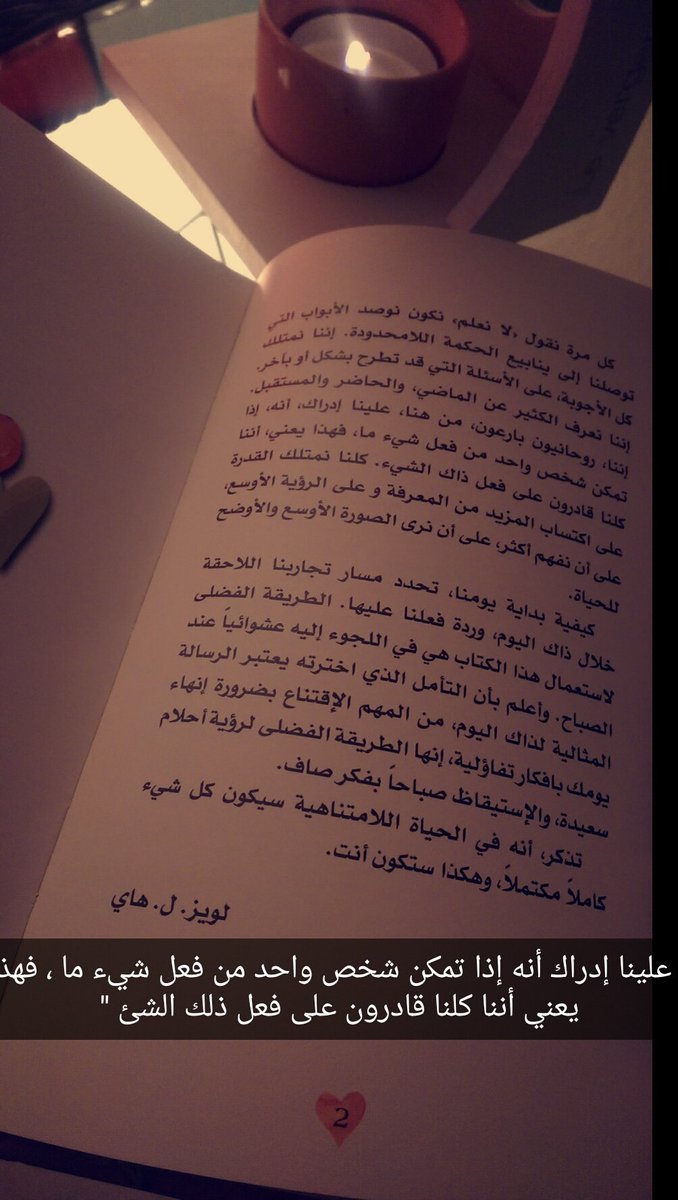 كل مرة نقول «لا نعلم» نكون نوصد الأبواب التي
توصلنا إلى ينابيع الحكمة اللامحدودة. إننا نمتلك
كل الأجوبة، على الأسئلة التي قد تطرح بشكل أو بآخر.
إننا نعرف الكثير عن الماضي، والحاضر والمستقبل.
إننا، روحانيون بارعون، من هنا، علينا إدراك، أنه، إذا
تمكن شخص واحد من فعل شيء ما، فهذا يعني، أننا
كلنا قادرون على فعل ذاك الشيء. كلنا نمتلك القدرة
على اكتساب المزيد من المعرفة و على الرؤية الأوسع،
على أن نفهم أكثر، على أن نرى الصورة الأوسع والأوضح
للحياة.
كيفية بداية يومنا، تحدد مسار تجاربنا اللاحقة
خلال ذاك اليوم، وردة فعلنا عليها. الطريقة الفضلى
لاستعمال هذا الكتاب هي في اللجوء إليه عشوائياً عند
الصباح. وأعلم بأن التأمل الذي اخترته يعتبر الرسالة
المثالية لذاك اليوم، من المهم الإقتناع بضرورة إنهاء
يومك بافكار تفاؤلية، إنها الطريقة الفضلى لرؤية أحلام
سعيدة، والإستيقاظ صباحاً بفكر صاف.
تذكر، أنه في الحياة اللامتناهية سيكون كل شيء
كاملاً مكتملاً، وهكذا ستكون أنت.
لويز. ل. هاي
علينا إدراك أنه إذا تمكن شخص واحد من فعل شيء ما ، فهذ
يعني أننا كلنا قادرون على فعل ذلك الشئ "
2